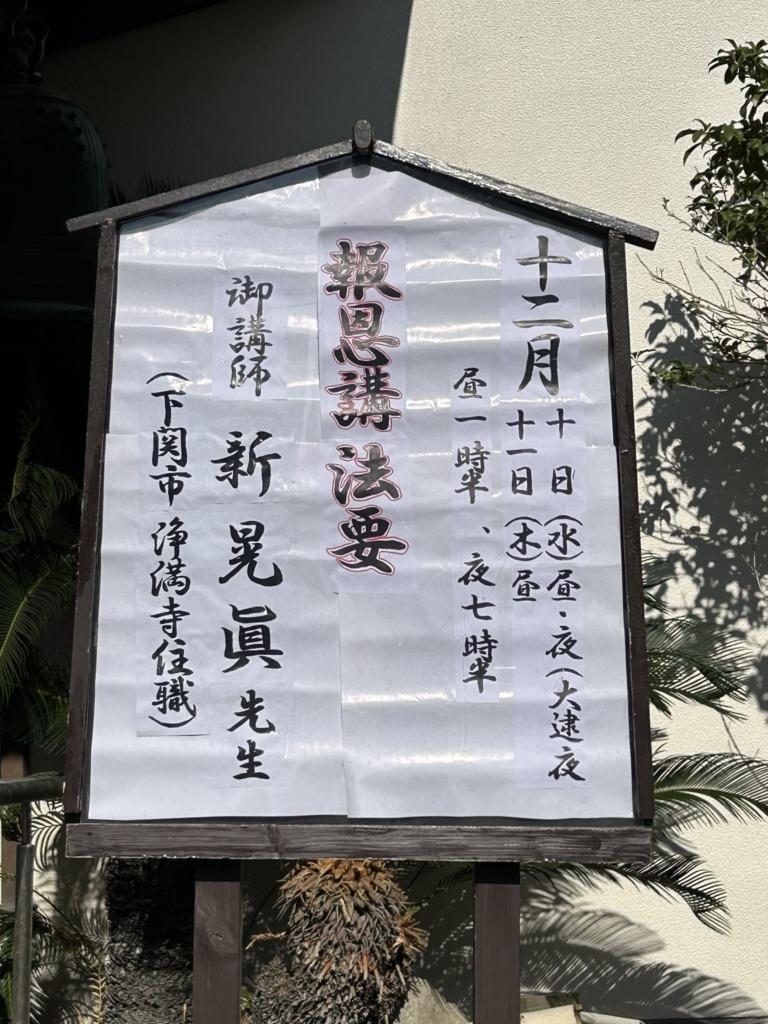 十二月
十日(水)昼・夜(大逮夜
十一日(木)昼
昼一時半、夜七時半
報恩講法要
御講師
新晃眞先生
(下関市 浄満寺住職)